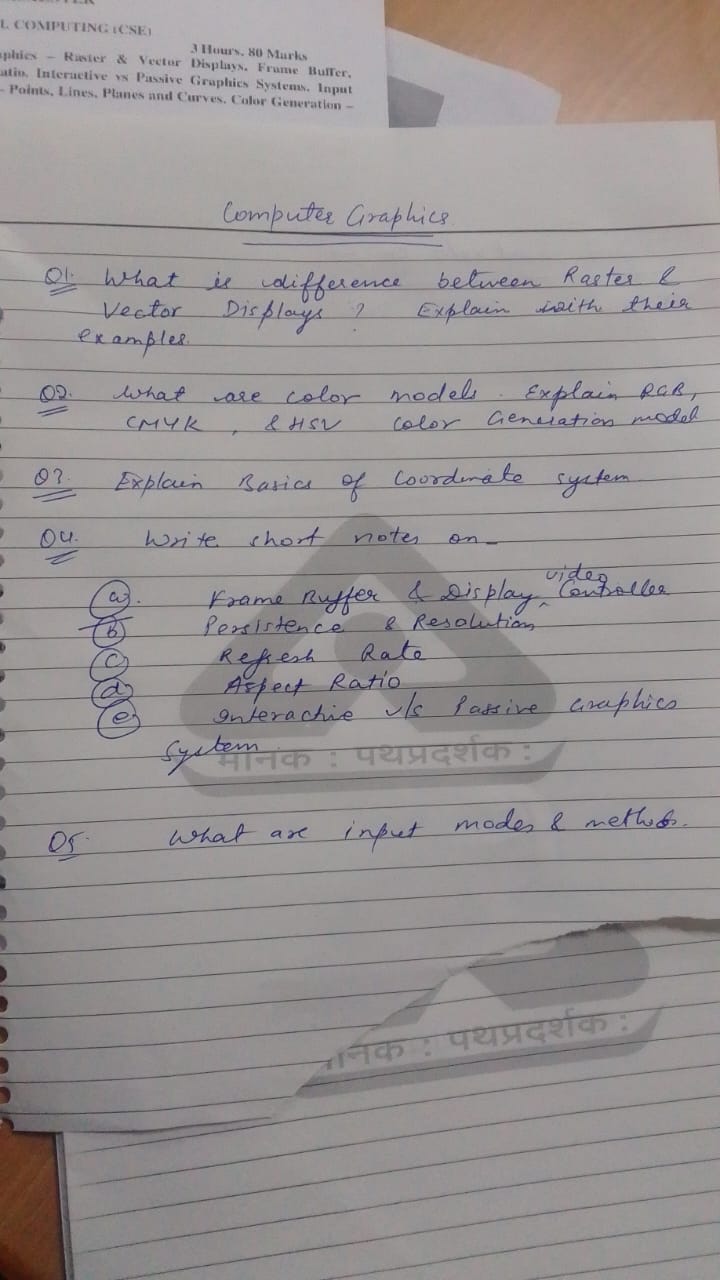 L COMPUTING (CSE)
3 Hours, 80 Marks
phics – Raster & Vector Displays, Frame Buffer,
atio, Interactive vs Passive Graphics Systems, Input
- Points, Lines, Planes and Curves, Color Generation –
Computer Graphics
Q1. What is difference between Raster &
Vector Displays ? Explain with their
examples.
Q2. What are color models. Explain RGB,
CMYK, & HSV color Generation model
Q3. Explain Basics of Coordinate system
Q4. Write short notes on -
video
(a). Frame Buffer & Display ^ Controller
(b) Persistence & Resolution
(c) Refresh Rate
(d) Aspect Ratio
(e) Interactive v/s Passive Graphics
System
मानक : पथप्रदर्शक :
Q5. What are input modes & methods.
मानक : पथप्रदर्शक :